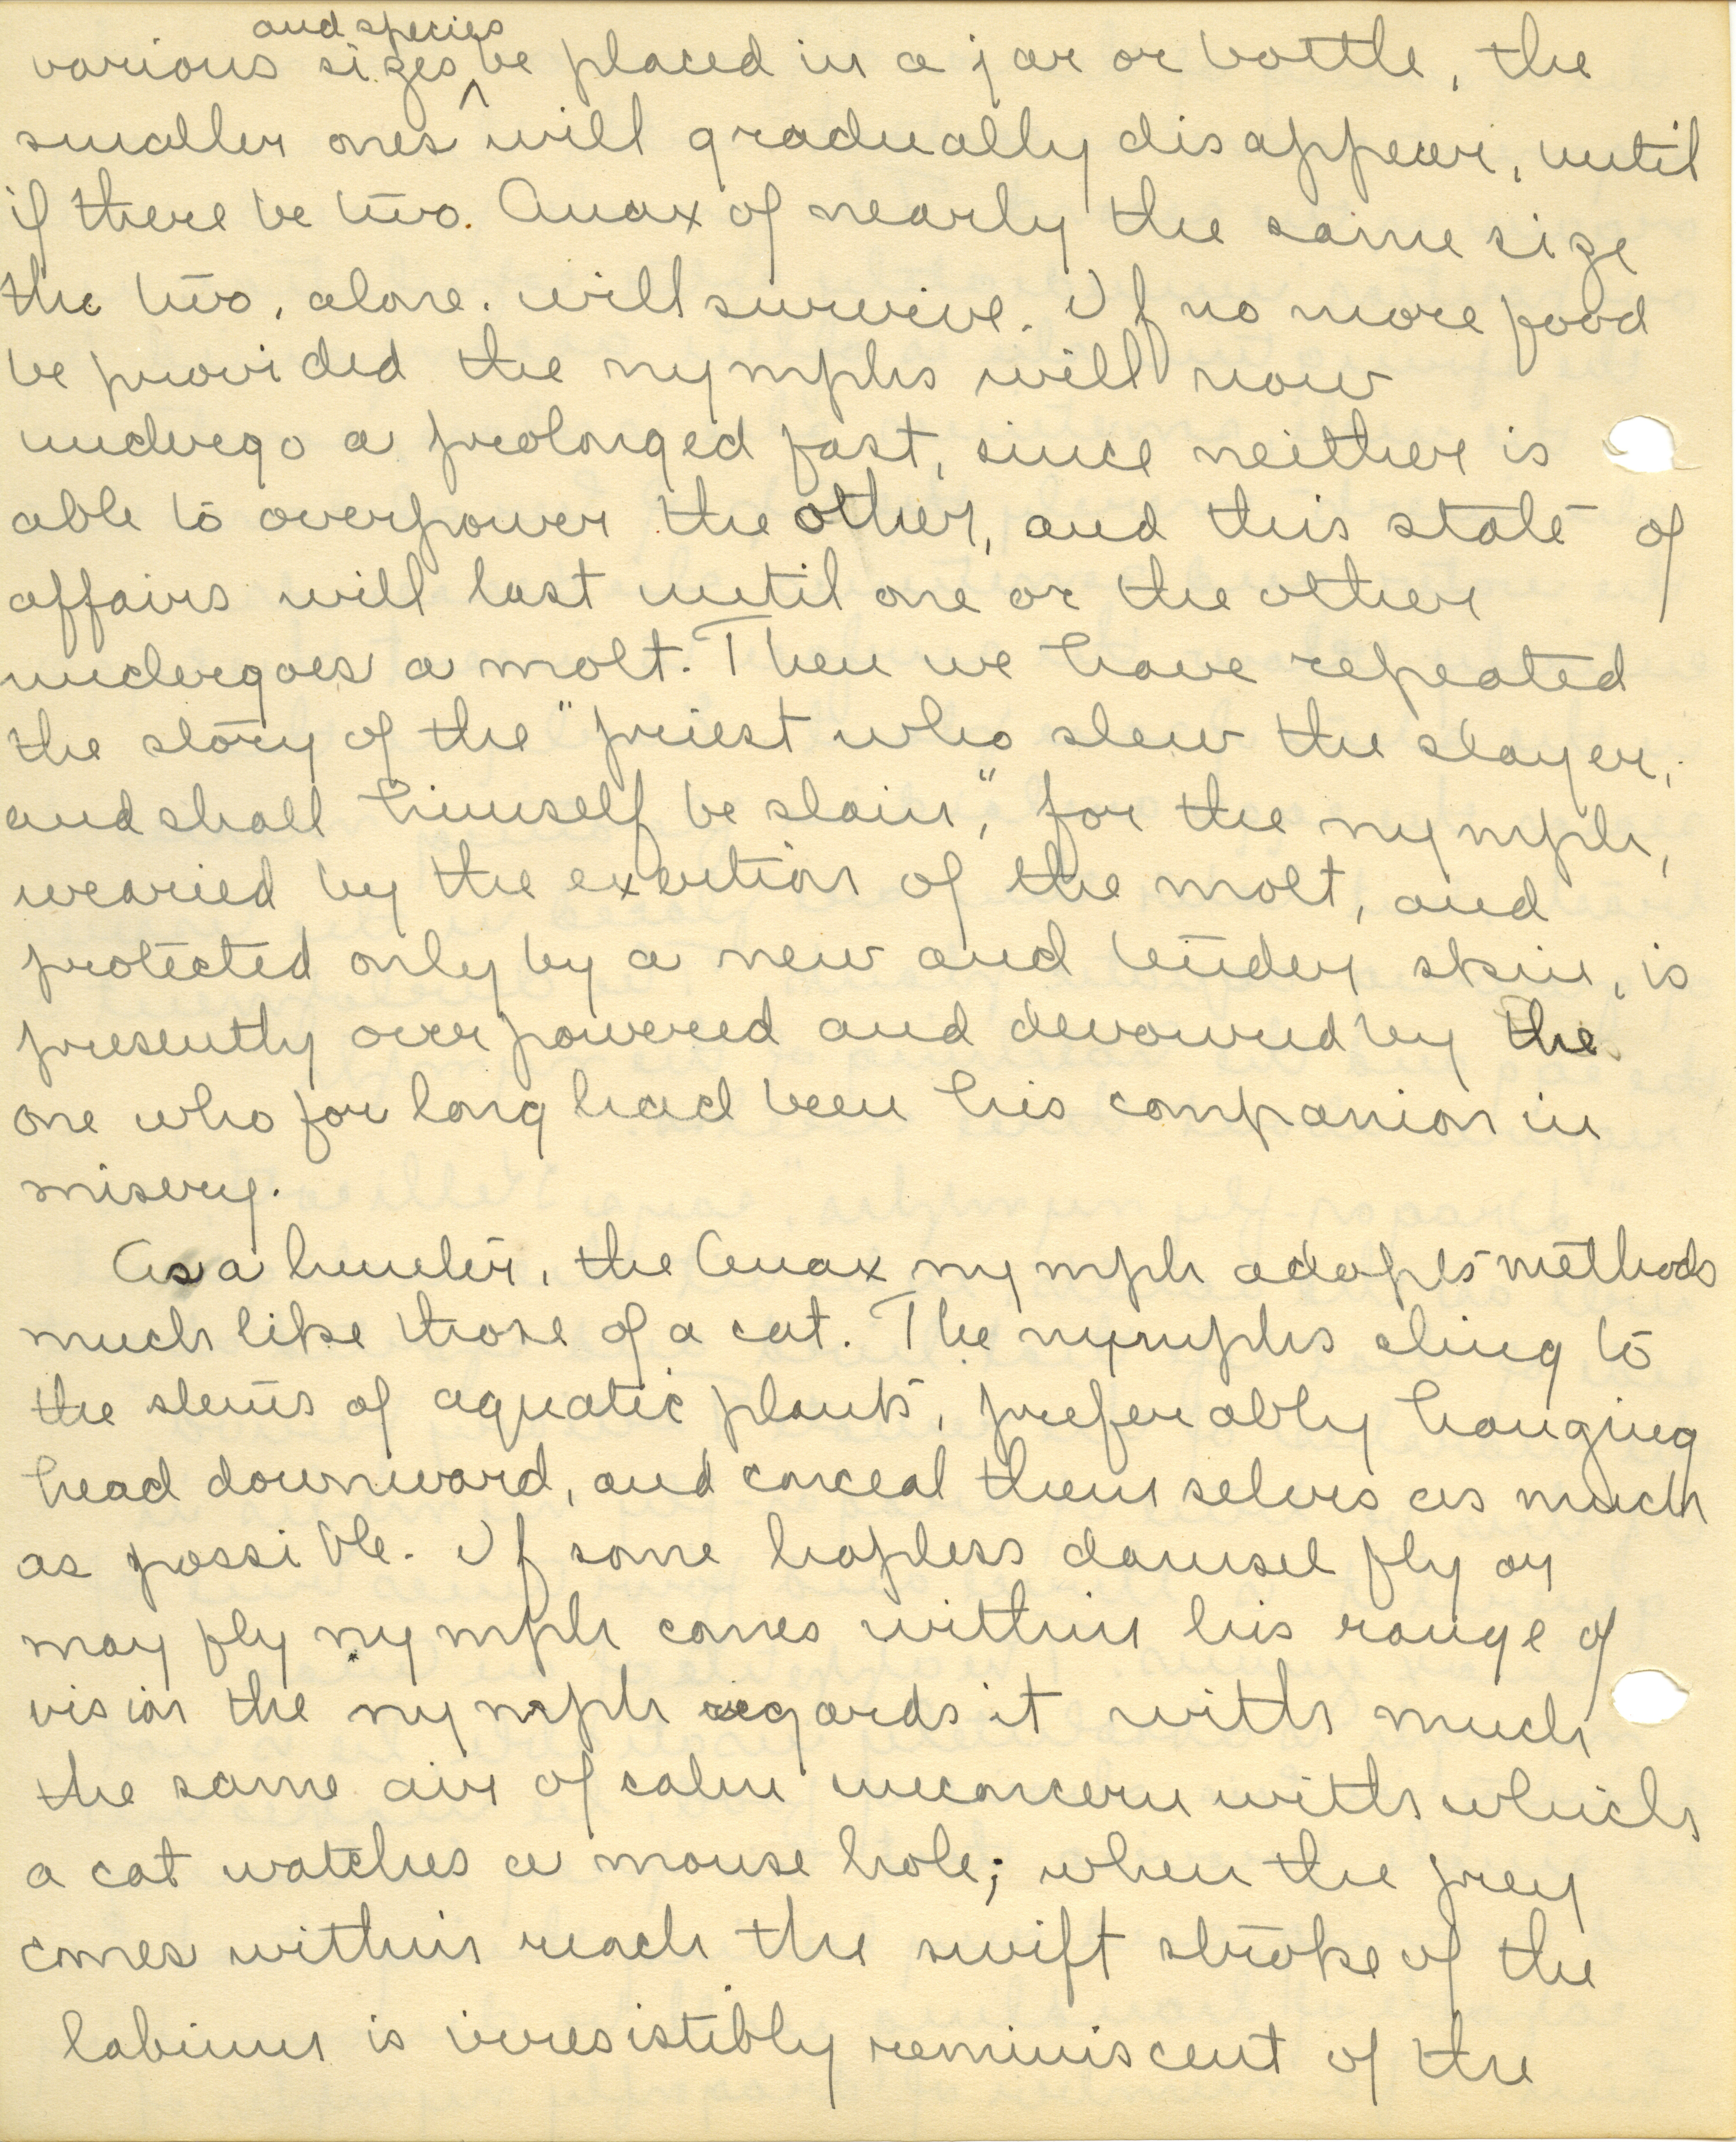 various sizes and species be placed in a jar or bottle, the
smaller ones will gradually disappear, until
if there be two. Anax of nearly the same size
the two, alone. will survive. If no more food
be provided the nymphs will now
undergo a prolonged fast, since neither is
able to overpower the other, and this state of
affairs will last until one or the other
undergoes a molt. Then we have repeated
the story of the "priest who slew the slayer,
and shall himself be slain," for the nymph,
wearied by the exertion of the molt, and
protected only by a new and tender skin, is
presently overpowered and devoured by the
one who for long had been his companion in
misery.
As a hunter, the Anax nymph adopts methods
much like those of a cat. The nymphs cling to
the stems of aquatic plants, preferably hanging
head downward, and conceal themselves as much
as possible. If some hapless damsel fly or
may fly nymph comes within his range of
vision the nymph regards it with much
the same air of calm unconcern with which
a cat watches a mouse hole; when the prey
comes within reach the swift stroke of the
labium is irresistibly reminiscent of the